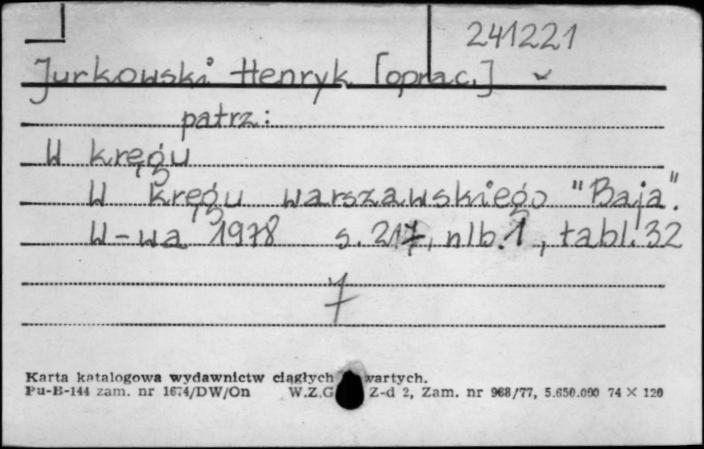 241221
Jurkowski Henryk [oprac.]
patrz:
W kręgu
W kręgu warszawskiego "Baja".
W-wa 1978 s. 217, nlb. 1, tabl. 32
7
Karta katalogowa wydawnictw ciągłych wartych.
Pu-B-144 zam. nr 1674/DW/On W.Z.G Z-d 2, Zam. nr 968/77, 5.650.000 74 × 120